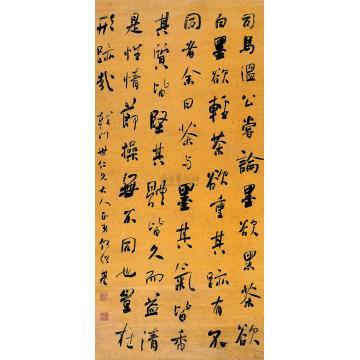 司馬溫公嘗論墨欲黑茶欲
白墨欲輕茶欲重其跡有不
同者余曰茶与墨其氣皆香
其質皆堅其體皆久而益清
是性情節操無不同也豈在
形跡哉
世仁兄大人正